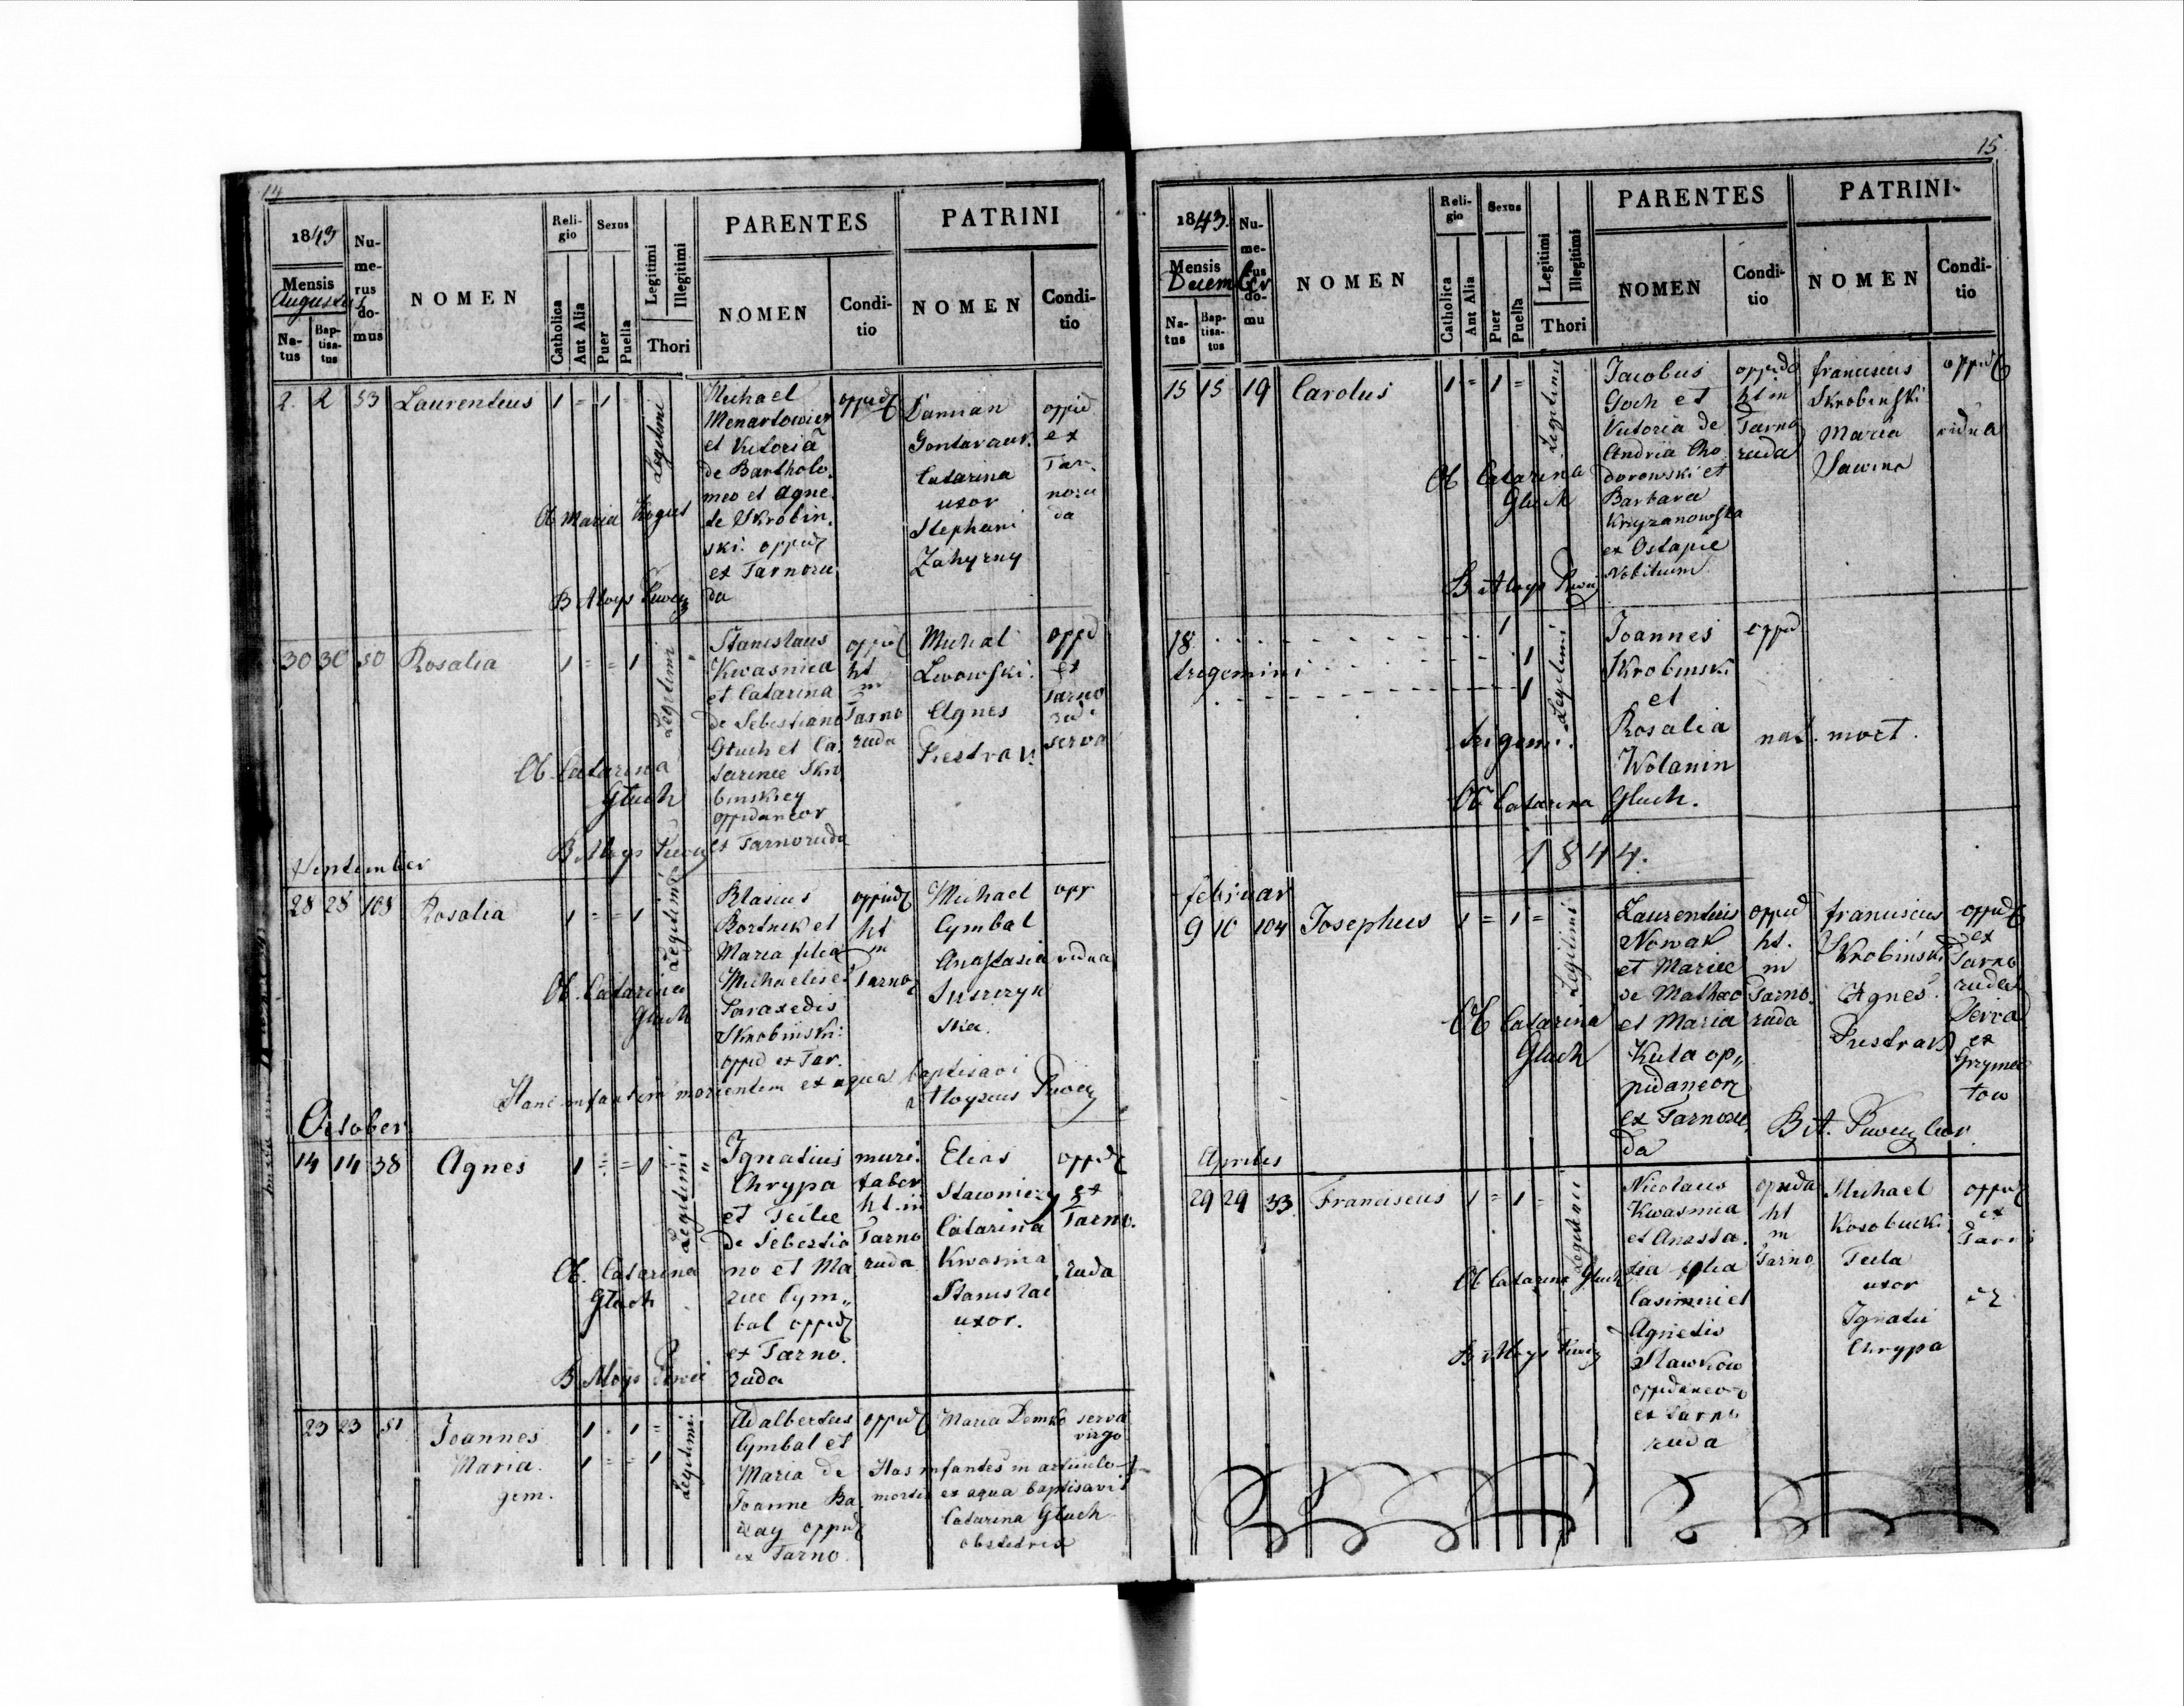 14
1843
Mensis
Augustus
Natus
Baptisatus
Numerus domus
NOMEN
Religio
Catholica
Aut Alia
Sexus
Puer
Puella
Legitimi
Illegitimi
Thori
PARENTES
NOMEN
Conditio
PATRINI
NOMEN
Conditio
2 2 53 Laurentius 1 = 1 -
Legitimi
Michael
Menartowicz
et Victoria
de Bartholo
meo et Agne
te Skrobin
ski oppid
ex Tarnoru
da
oppid
Damian
Gontaraur.
Catarina
uxor
Stephani
Zahyrny
oppid
ex
Tar
noru
da
Ob Maria
B Aloys
30 30 50 Rosalia 1 = = 1
Legitimi
Stanislaus
Kwasnica
et Catarina
de Sebestiano
Gluch et Ca
tarinae Skro
binskiey
oppidaneor
ex Tarnoruda
oppid
ht
in
Tarno
ruda
Michal
Lwowski.
Agnes
Piestrak
oppid
ex
Tarno
rud
serva
Ob. Catarina
Gluch
B Aloys
September
28 28 108 Rosalia 1 = = 1
Legitimi
Blasius
Bortnik et
Maria filia
Michaelis et
Paraxedis
Skrobinski
oppid ex Tar.
oppid
ht
in
Tarno
Michael
Cymbal
Anastasia
ska.
opp
vidua
Ob. Catarina
Gluch
Hanc infantem morientem ex aqua baptisavi
Aloysius
October
14 14 38 Agnes 1 = = 1
Legitimi
Ignatius
Chrypa
et Teclae
de Sebestia
no et Ma
riae Cym„
bal oppid
ex Tarno.
ruda
muri.
faber
ht. in
Tarno
ruda
Elias
Slawniczy
Catarina
Kwasnica
Stanislai
uxor.
oppid
ex
Tarno.
ruda
Ob. Catarina
Gluch
B Aloys
23 23 51 Joannes 1 - 1 =
Maria. 1 = = 1
gem.
Legitimi.
Adalbertus
Cymbal et
Maria de
Joanne Ba
zay oppid
ex Tarno.
oppid
Maria Demko serva
virgo
Has infantes in articulo
mortis ex aqua baptisavit
Catarina Gluch
obstetrix
15
1843.
Mensis
December
Natus
Baptisatus
Numerus domu
NOMEN
Religio
Catholica
Aut Alia
Sexus
Puer
Puella
Legitimi
Illegitimi
Thori
PARENTES
NOMEN
Conditio
PATRINI
NOMEN
Conditio
15 15 19 Carolus 1 = 1 =
Legitimi
Jacobus
Goch et
Victoria de
Andria Cho
dorowski et
Barbara
Krzyzanowska
ex Ostapie
Nobilium
oppida
ht in
Tarno
ruda
franciscus
Skrobinski
Maria
Sawina
oppid
vidua
Ob Catarina
Gluch
B Aloys
18 1
tregemini 1
1
Legitimi
Joannes
Skrobinski
et
Rosalia
Wolanin
oppid
trigem. nat. mort.
Ob Catarina Gluch.
1844.
februar
9 10 104 Josephus 1 = 1 =
Legitimi
Laurentius
Nowak
et Mariae
de Mathao
et Maria
Kula op„
pidaneor
ex Tarnoru
da
oppid
ht.
in
Tarno.
ruda
franciscus
Skrobinski
Agnes
Piestrak
oppid
ex
Tarno
ruda
Serva
ex
Grzyma
tow
Ob Catarina
Gluch
B A.
Aprilis
29 29 33. Franciscus 1 = 1 =
Legitimi
Nicolaus
Kwasnica
et Anasta
sia filia
Casimiri et
Agnetis
Slawkow
oppidaneor
ex Tarno
ruda
oppida
ht
in
Tarno
Michael
Kosobucki
Tecla
uxor
Ignatii
Chrypa
oppid
ex
Tar
Ob Catarina Gluch
B Aloys